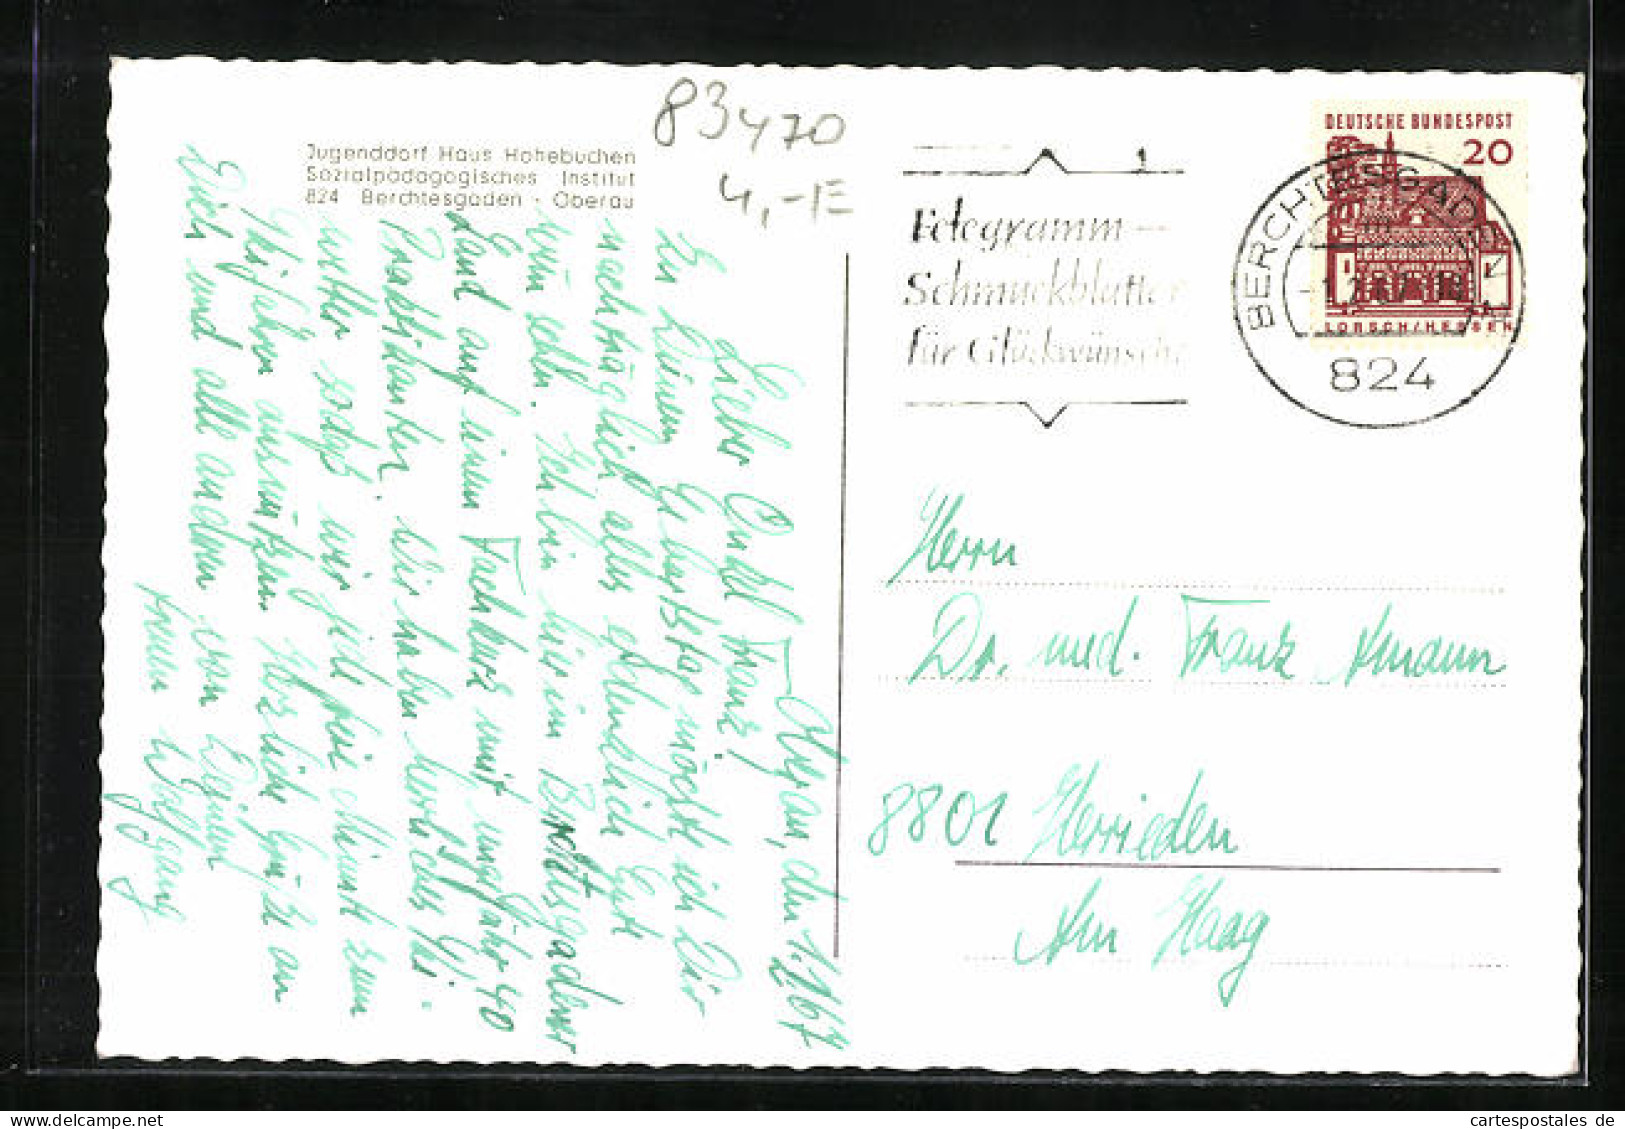 Jugenddorf Haus Hohebuchen
Sozialpädagogisches Institut
824 Berchtesgaden - Oberau
83470
4,-E
1
Telegramm-
Schmuckblätter
für Glückwünsche
BERCHTESGADEN
824
DEUTSCHE BUNDESPOST
20
LORSCH/HESSEN
den 1.2.67
Lieber Onkel Franz!
Zu Deinem Geburtstag möcht ich Dir
nachträglich alles erdenklich Gute
wünschen. Ich bin hier im Berchtesgadener
Land auf einem Fachkurs mit ungefähr 40
Praktikanten. Wir haben herrliches Ski-
wetter sodaß wir jede freie Minute zum
Skifahren ausnützen. Herzliche Grüße an
Dich und alle andren von Deinem
Wolfgang
Herrn
Dr. med. Franz Amann
8801 Herrieden
Am Haag
cartespostales de